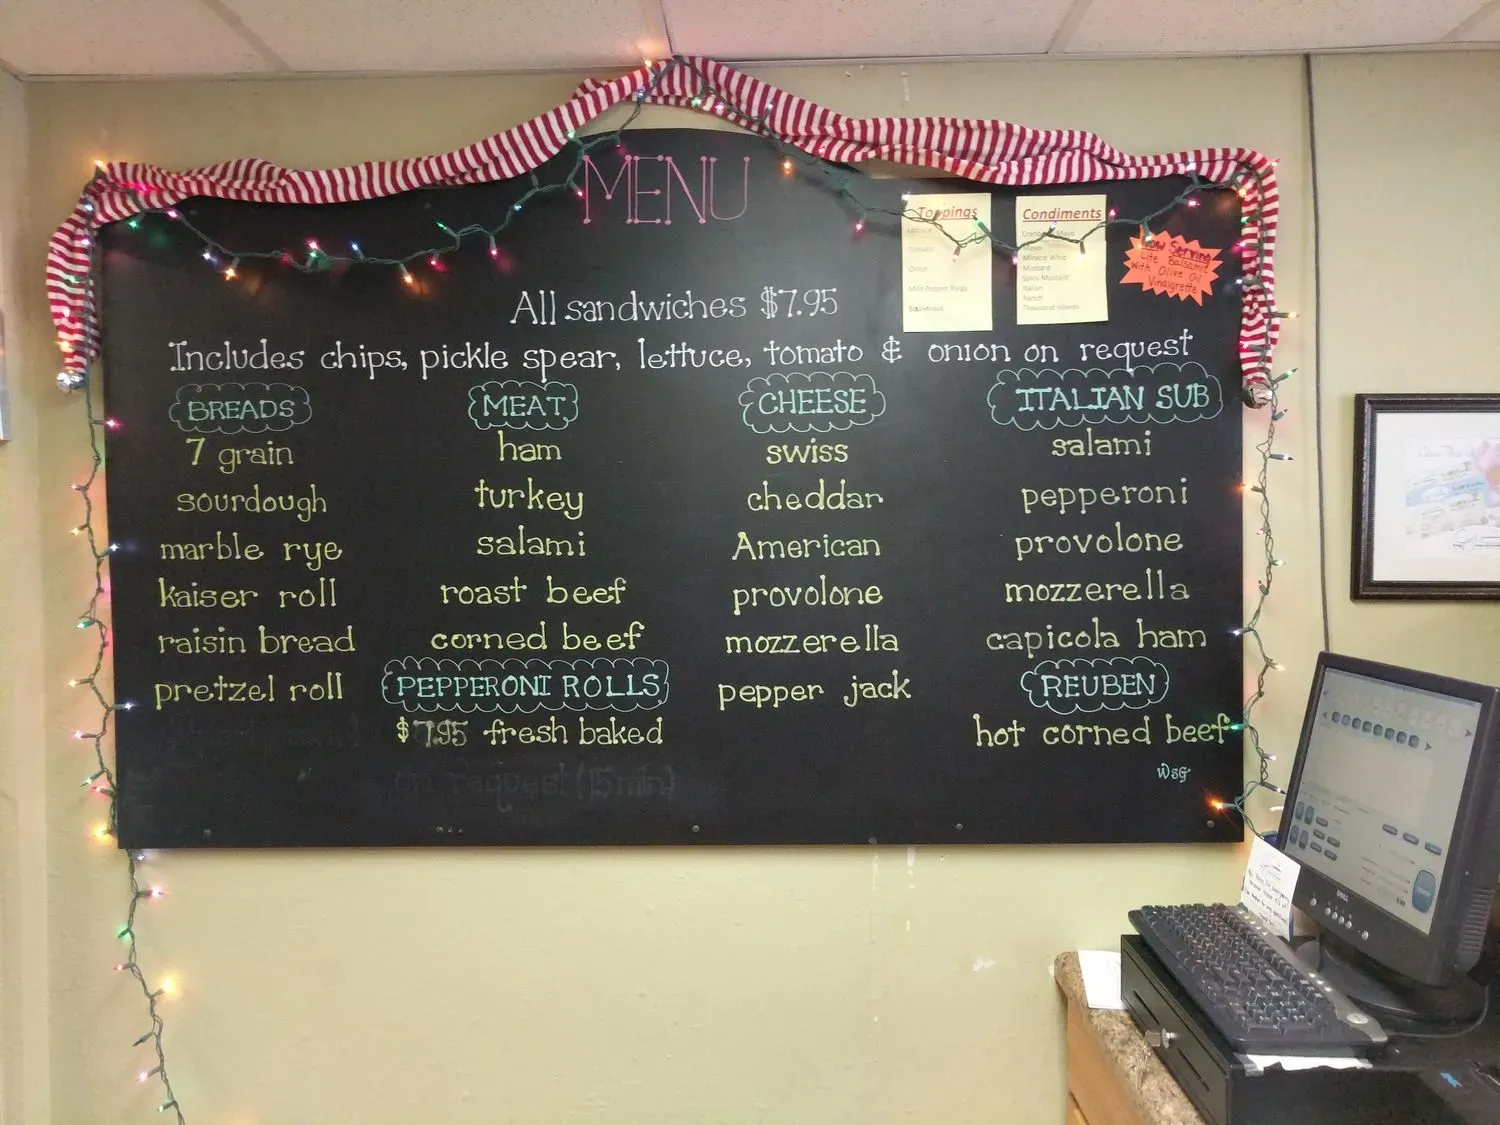 MENU
Toppings
Lettuce
Tomato
Onion
Mild Pepper Rings
Sauerkraut
Condiments
Mayo
Miracle Whip
Mustard
Spicy Mustard
Italian
Ranch
Thousand Islands
Now Serving
Lite Balsamic
with Olive Oil
Vinaigrette
All sandwiches $7.95
Includes chips, pickle spear, lettuce, tomato & onion on request
BREADS
7 grain
sourdough
marble rye
kaiser roll
raisin bread
pretzel roll
MEAT
ham
turkey
salami
roast beef
corned beef
PEPPERONI ROLLS
$7.95 fresh baked
on request (15 min)
CHEESE
swiss
cheddar
American
provolone
mozzerella
pepper jack
ITALIAN SUB
salami
pepperoni
provolone
mozzerella
capicola ham
REUBEN
hot corned beef
WSG
DELL